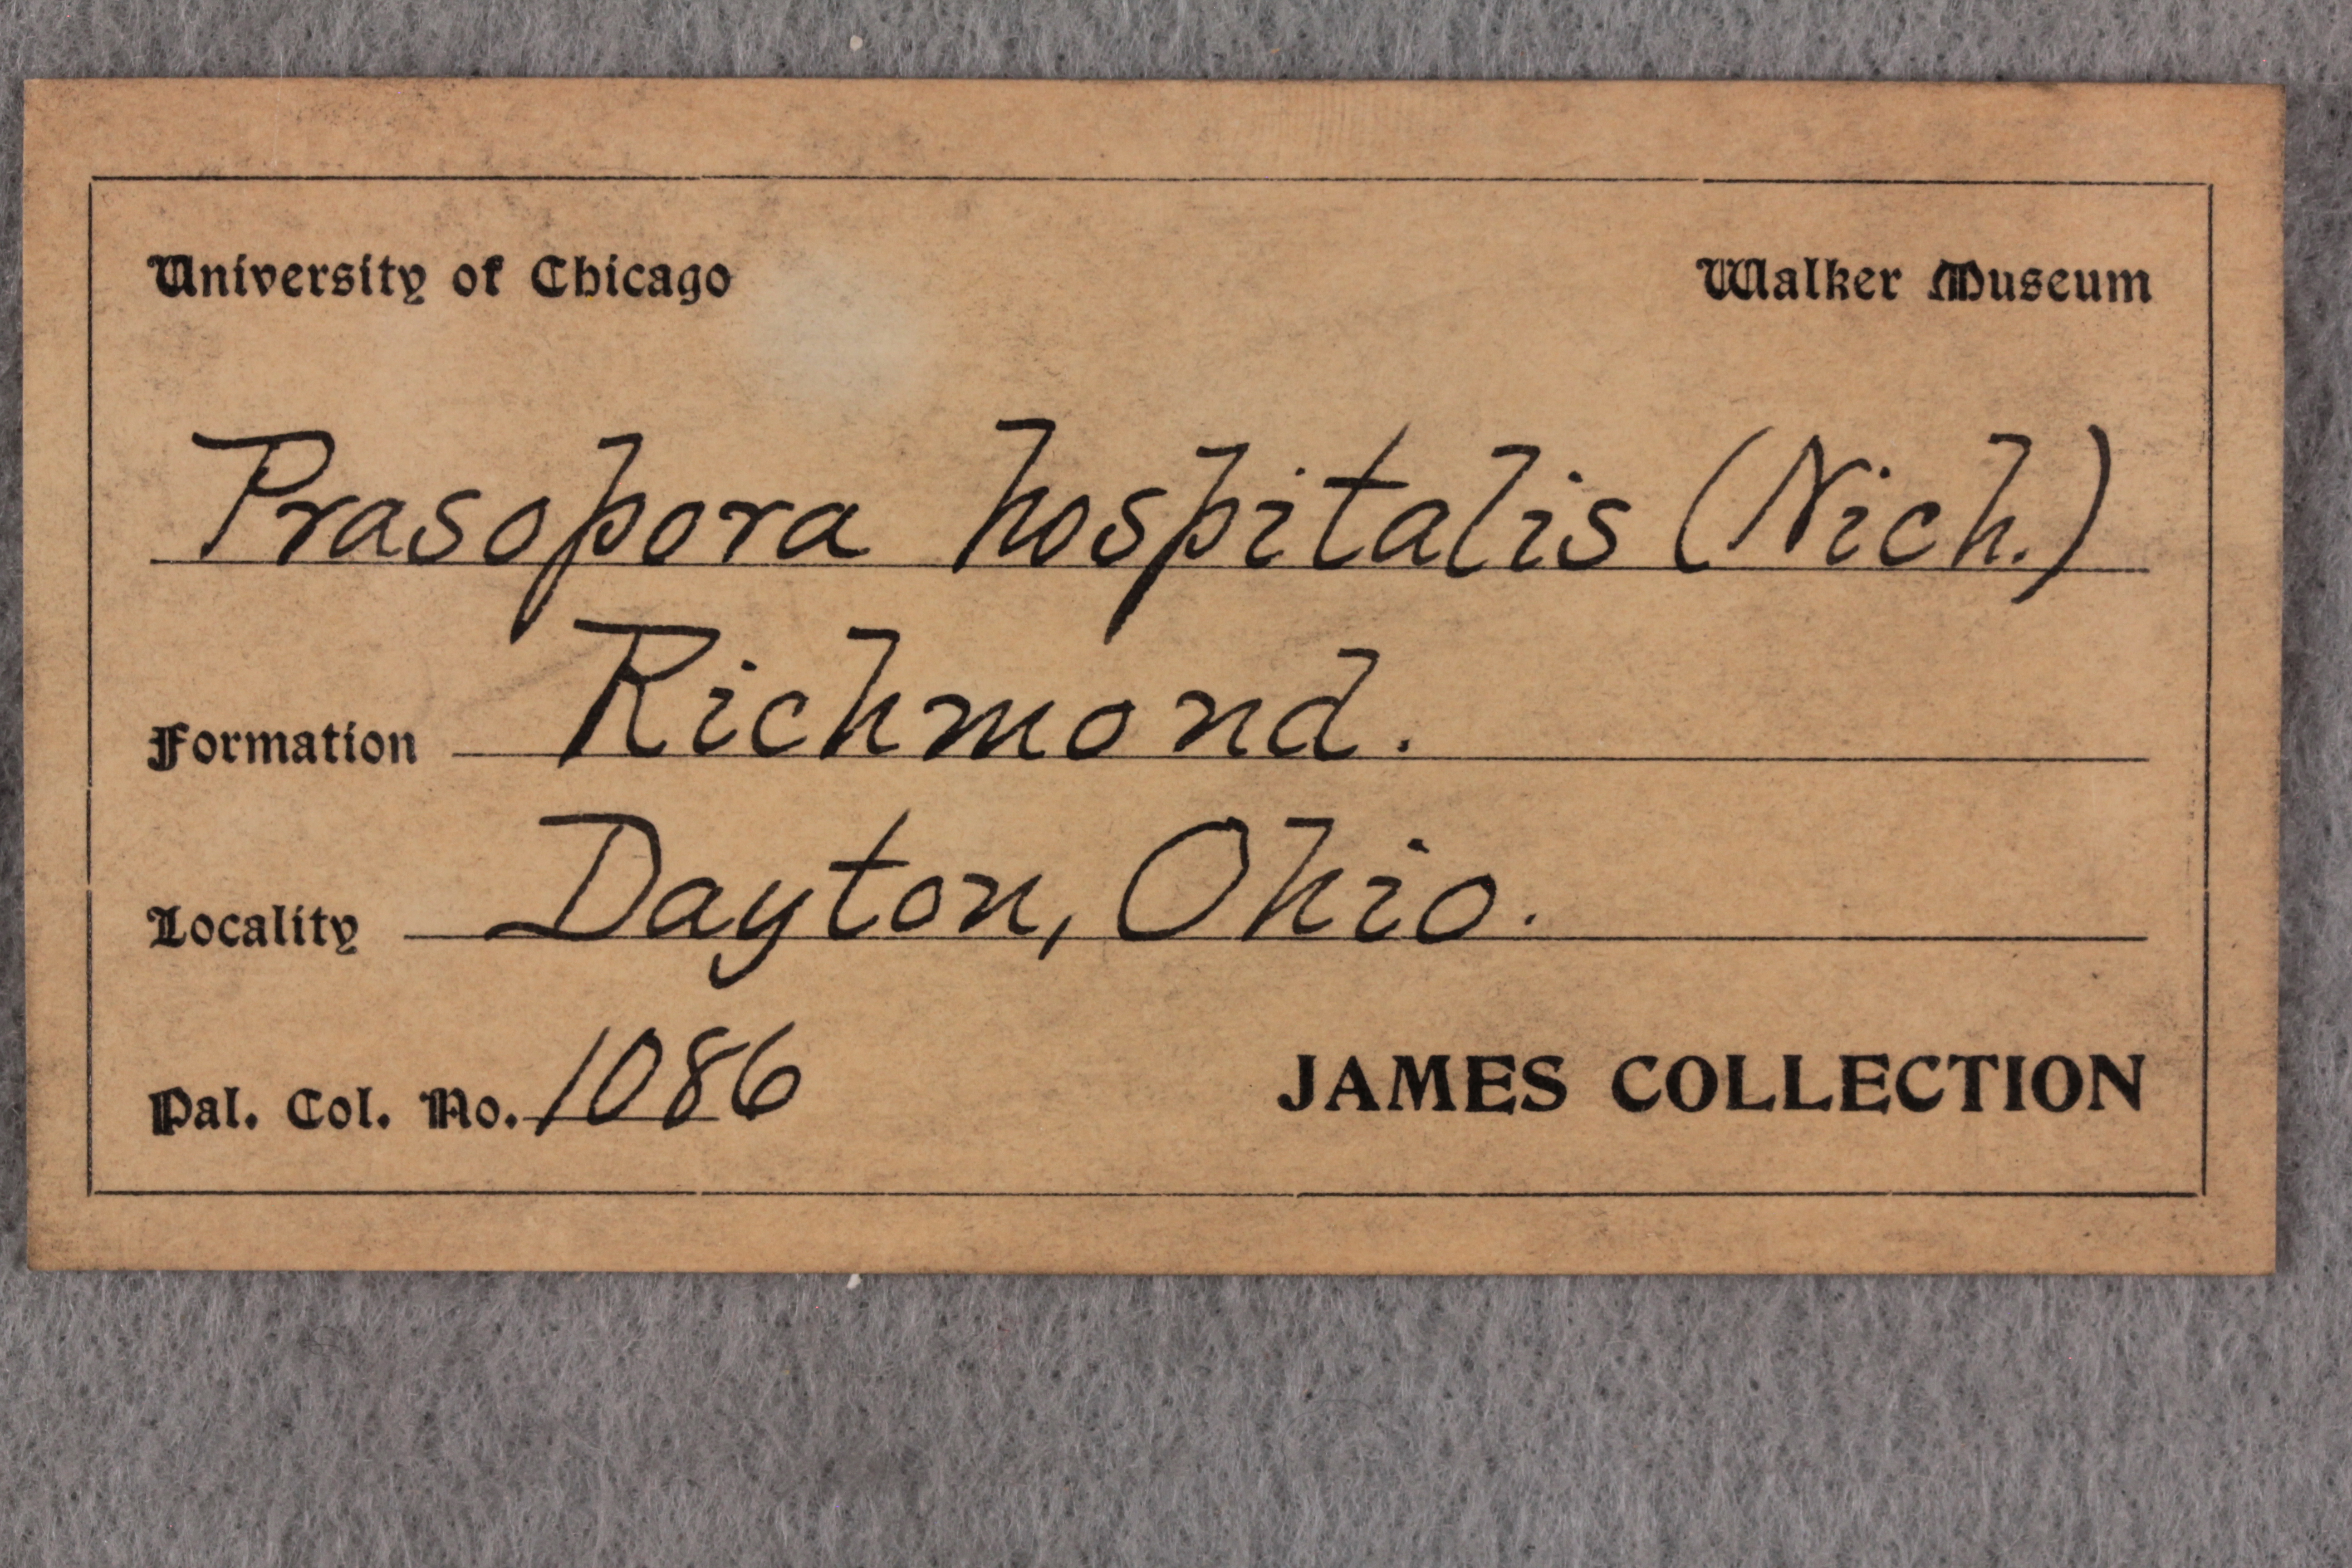 University of Chicago Walker Museum
Prasopora hospitalis (Nich.)
Formation Richmond.
Locality Dayton, Ohio.
Pal. Col. No. 1086 JAMES COLLECTION